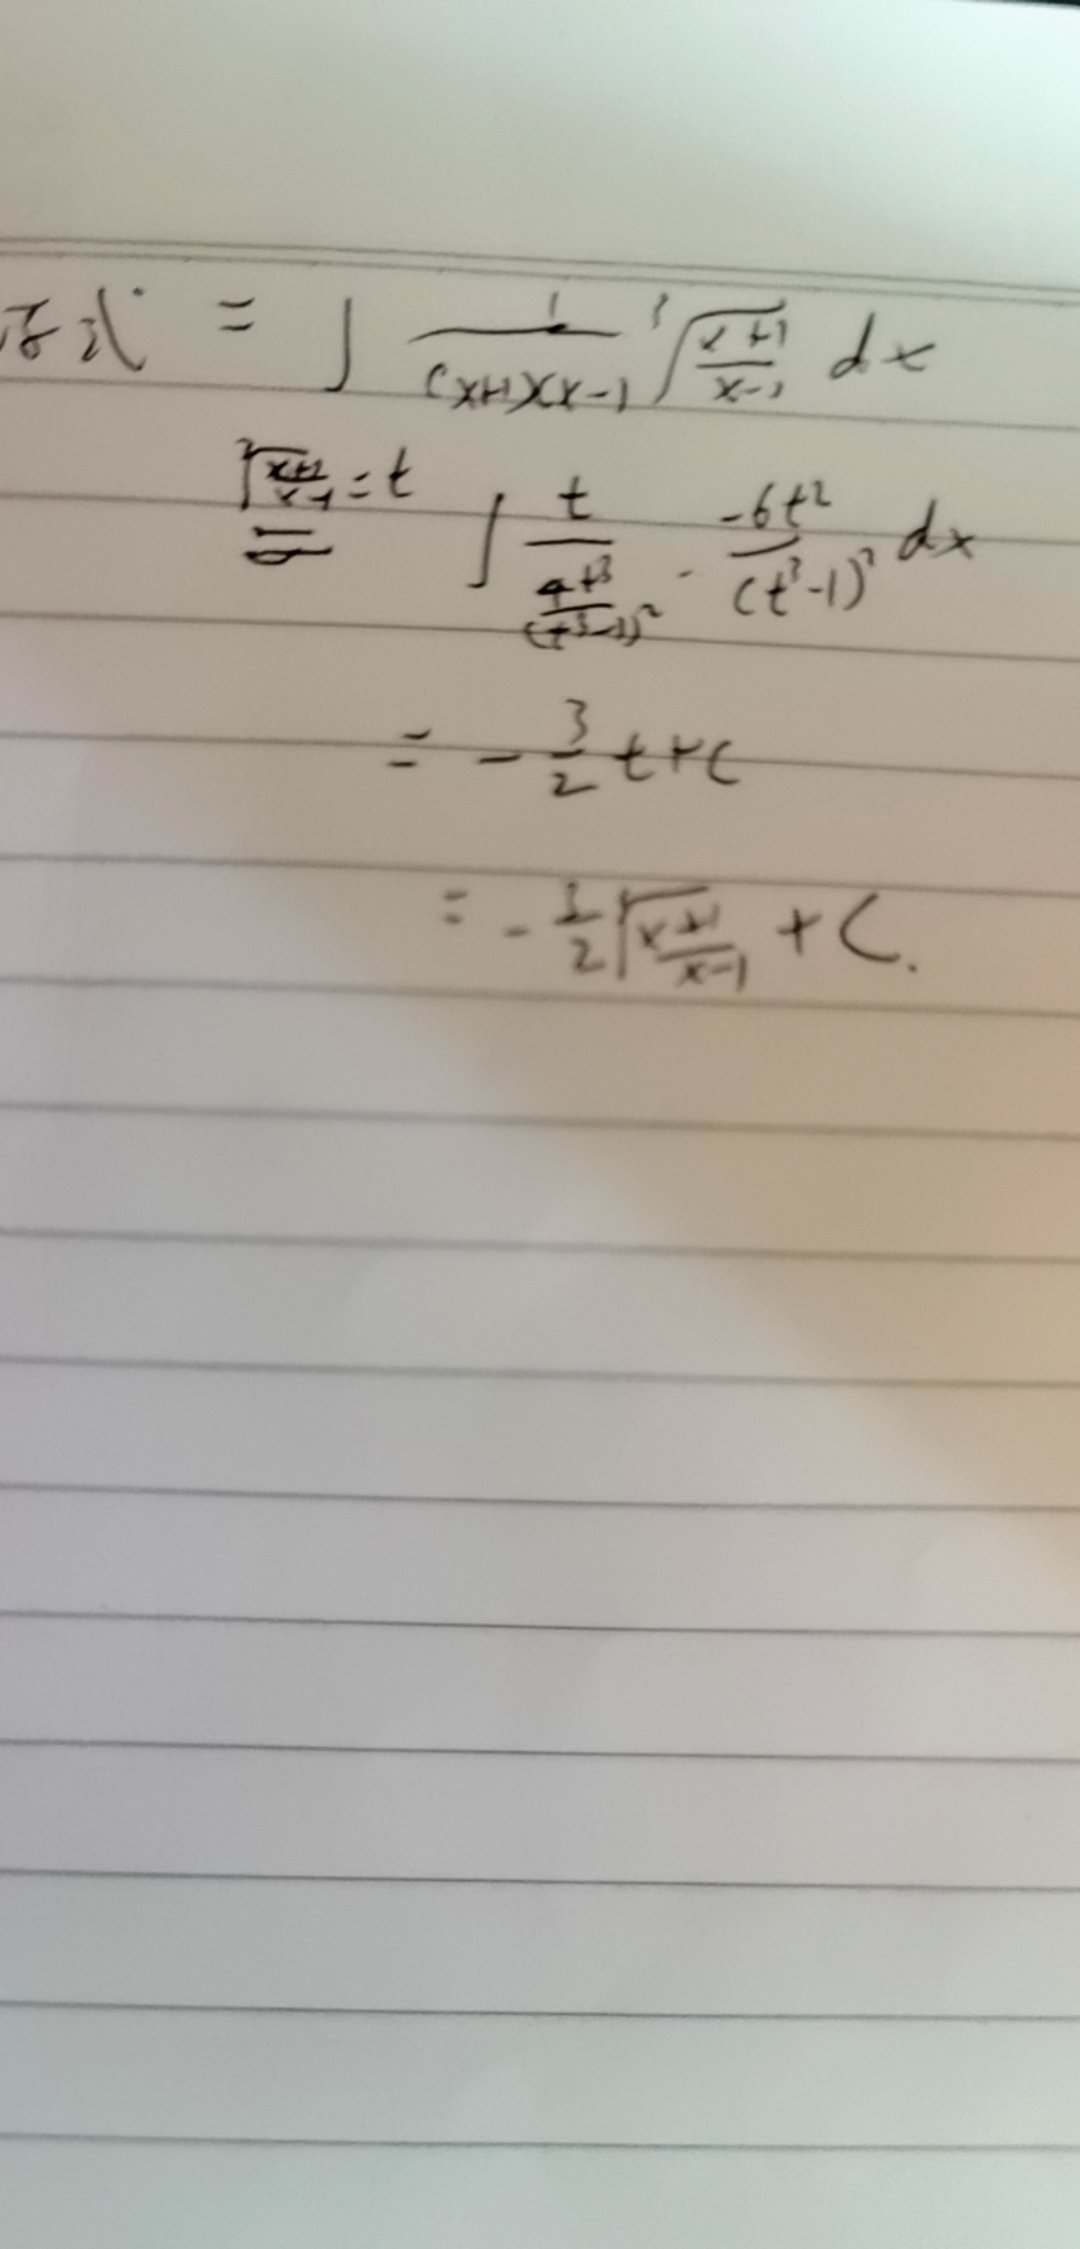 原式 = ∫ 1/((x+1)(x-1)) ∛((x+1)/(x-1)) dx
∛((x+1)/(x-1)) = t
= ∫ t/(4t³/(t³-1)²) · (-6t²)/(t³-1)² dx
= - 3/2 t + C
= - 3/2 ∛((x+1)/(x-1)) + C.